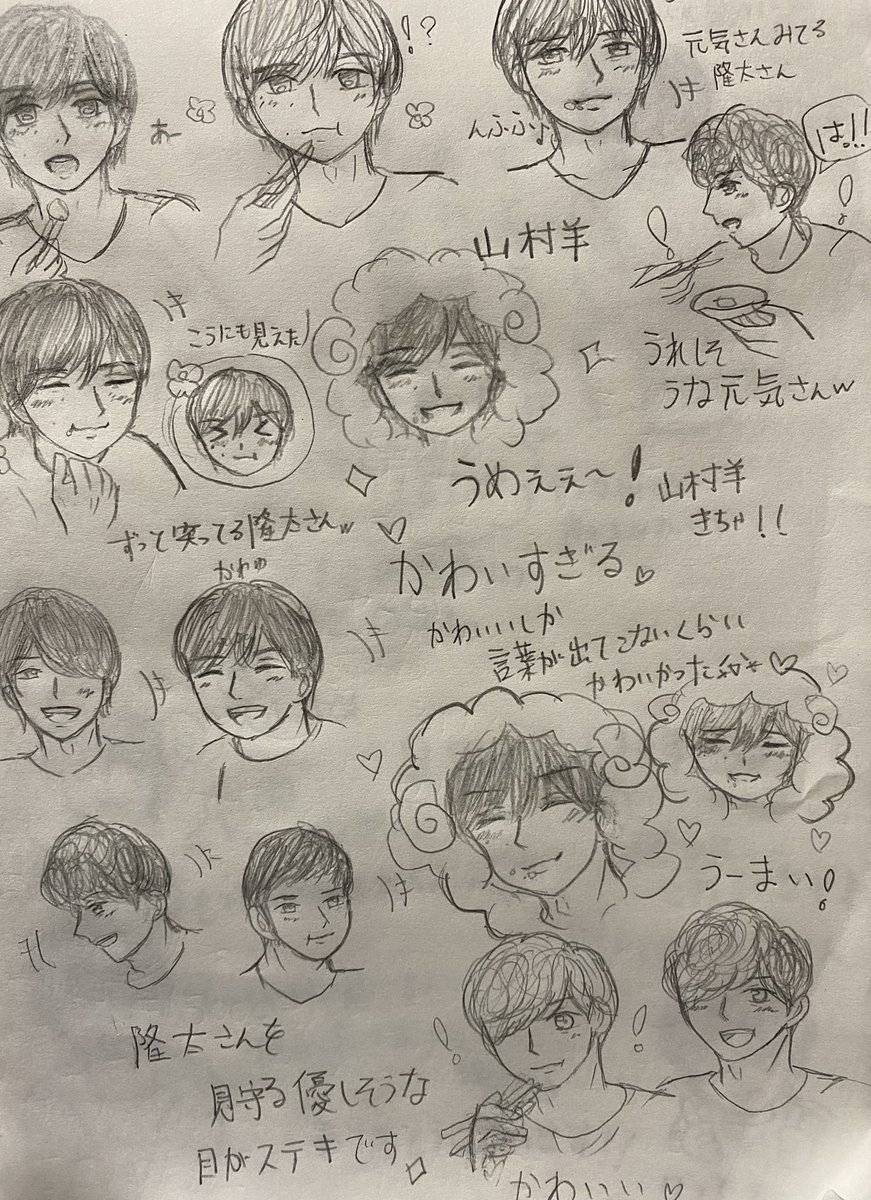 !?
元気さんみてる
隆太さん
あー
んふふ♪
は!!
山村羊
こうにも見えた
うれしそ
うな元気さんw
うめぇぇ〜!
山村羊
きちゃ!!
ずって笑ってる隆太さんw
かわゆ
かわいすぎる♡
かわいいしか
言葉が出てこないくらい
かわいかった
うーまい!
隆太さんを
見守る優しそうな
目がステキです
かわいい♡